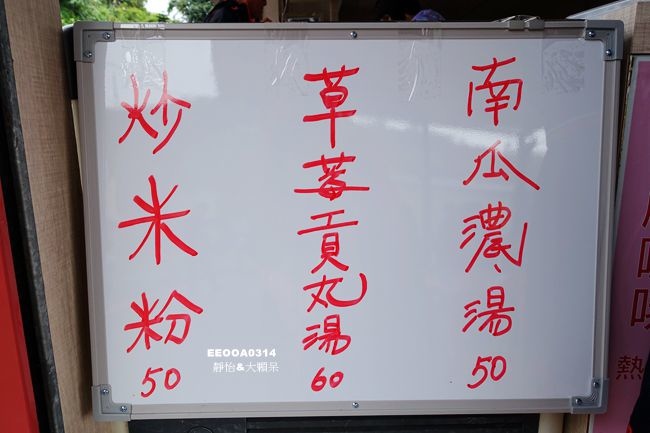 南瓜濃湯50
草莓貢丸湯60
炒米粉50
EEOOA0314
靜怡&大顆呆
熱